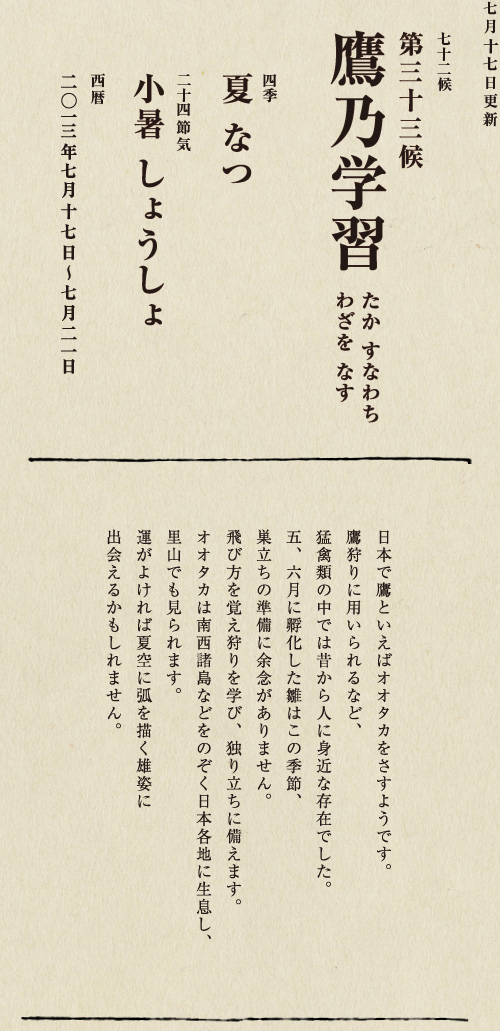 七月十七日更新
七十二候
第三十三候
鷹乃学習
たか すなわち
わざを なす
四季
夏 なつ
二十四節気
小暑 しょうしょ
西暦
二〇一三年七月十七日〜七月二一日
日本で鷹といえばオオタカをさすようです。
鷹狩りに用いられるなど、
猛禽類の中では昔から人に身近な存在でした。
五、六月に孵化した雛はこの季節、
巣立ちの準備に余念がありません。
飛び方を覚え狩りを学び、独り立ちに備えます。
オオタカは南西諸島などをのぞく日本各地に生息し、
里山でも見られます。
運がよければ夏空に弧を描く雄姿に
出会えるかもしれません。